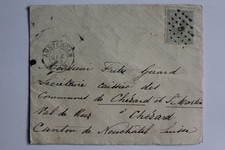 AMSTERDAM
Monsieur Fritz Girard
Secrétaire caissier des
Communes de Chézard et St Martin
Val de Ruz à Chézard
Canton de Neuchâtel Suisse